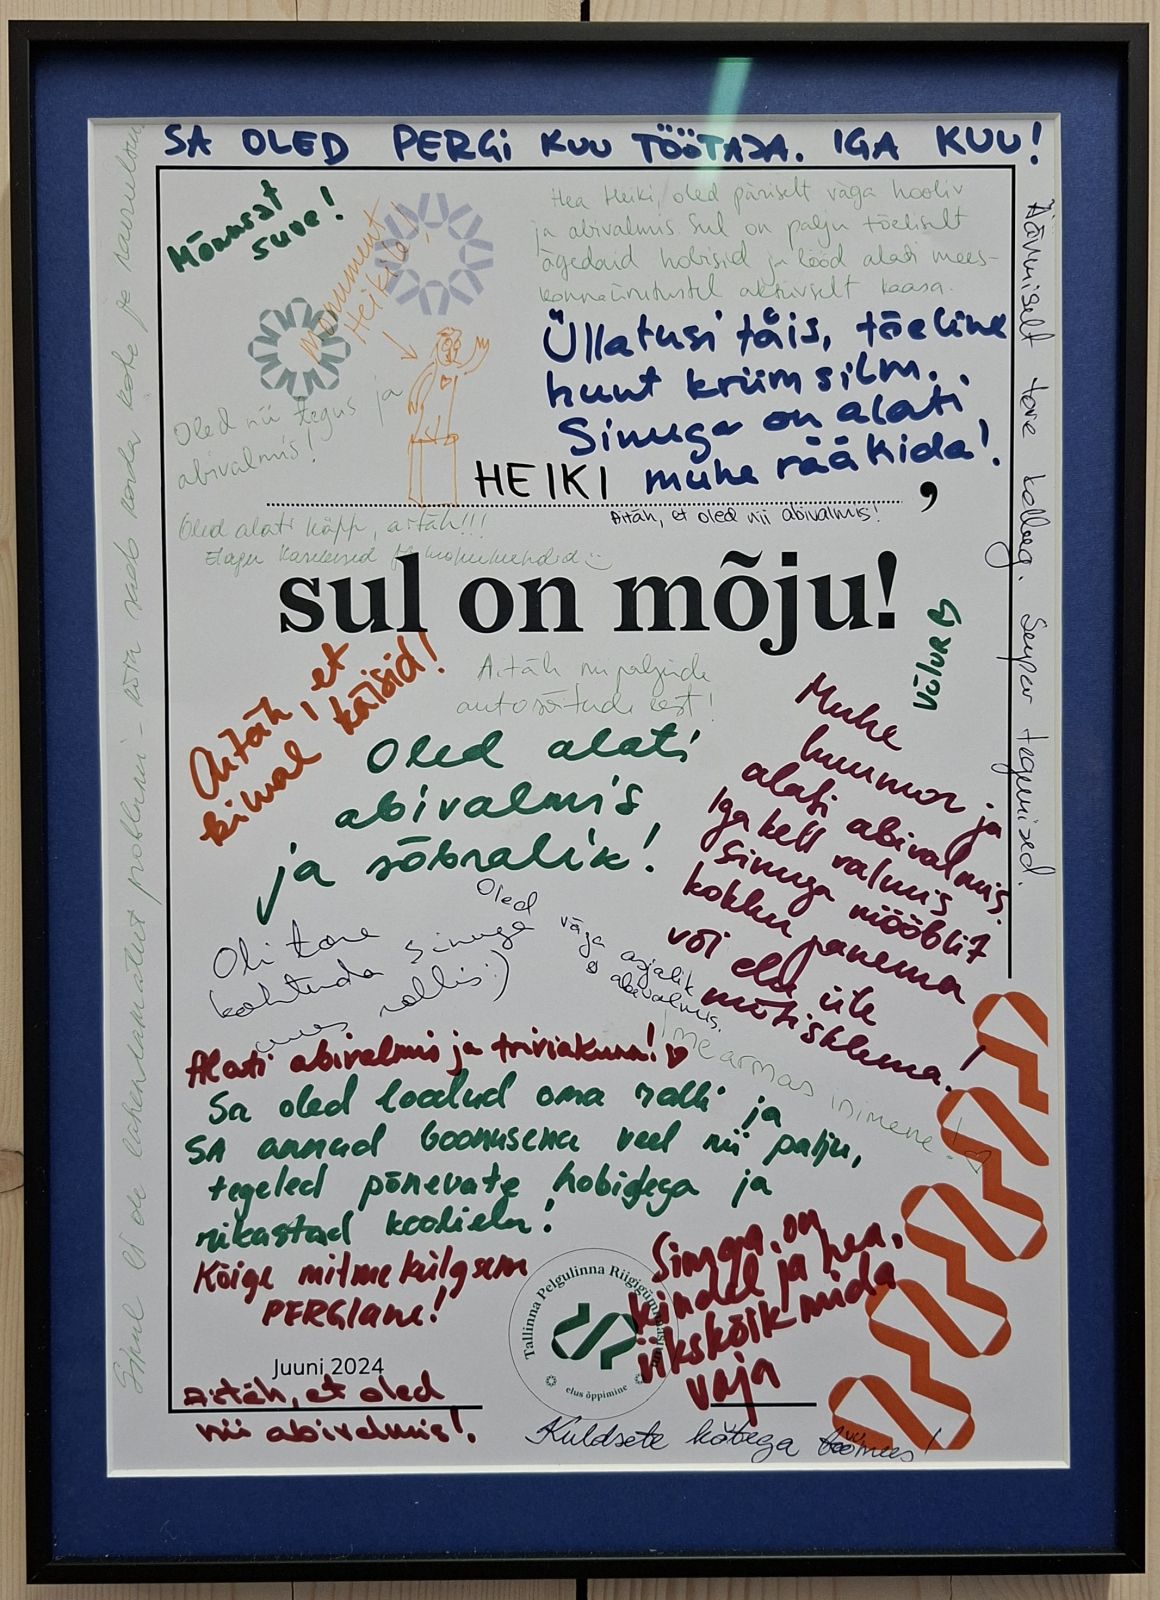 SA OLED PERGi KUU TÖÖTAJA. IGA KUU!
Mõnusat
suve!
Monument
Heikile!
Hea Heiki, oled päriselt väga hooliv
ja abivalmis. Sul on palju tõeliselt
ägedaid hobisid ja lööd alati mees-
konnaüritustel aktiivselt kaasa.
Üllatusi täis, tõeline
hunt kriimsilm.
Sinuga on alati
muhe rääkida!
Oled nii tegus ja
abivalmis!
HEIKI
,
Oled alati käpp, aitäh!!!
Elagu karikused ja monumendid
Aitäh, et oled nii abivalmis!
sul on mõju!
Äärmiselt tore kolleeg. Super tegemised.
VÕLUR
Aitäh, et
kinal käisid!
Aitäh nii paljude
autosõitude eest!
Oled alati
abivalmis
ja sõbralik!
Muhe
huumor ja
alati abivalmis.
Iga kell valmis
sinuga mööblit
kokku panema
või elu üle
mõtisklema!
Oli tore
kohtuda sinuga
uues rollis:)
Oled väga asjalik
& abivalmis.
Imearmas inimene!
Alati abivalmis ja triviakuna!
Sa oled loodud oma rolli ja
SA annad boonusena veel nii palju,
tegeled põnevate hobidega ja
rikastad koolielu!
Kõige mitmekülgsem
PERGIane!
Sinuga on
kindel ja hea,
ükskõik mida
vaja
Tallinna Pelgulinna Riigigümnaasium
elus õppimine
Juuni 2024
Aitäh, et oled
nii abivalmis!
Kuldsete kätega töömees!
Sinul ei ole lahendamatut probleemi -